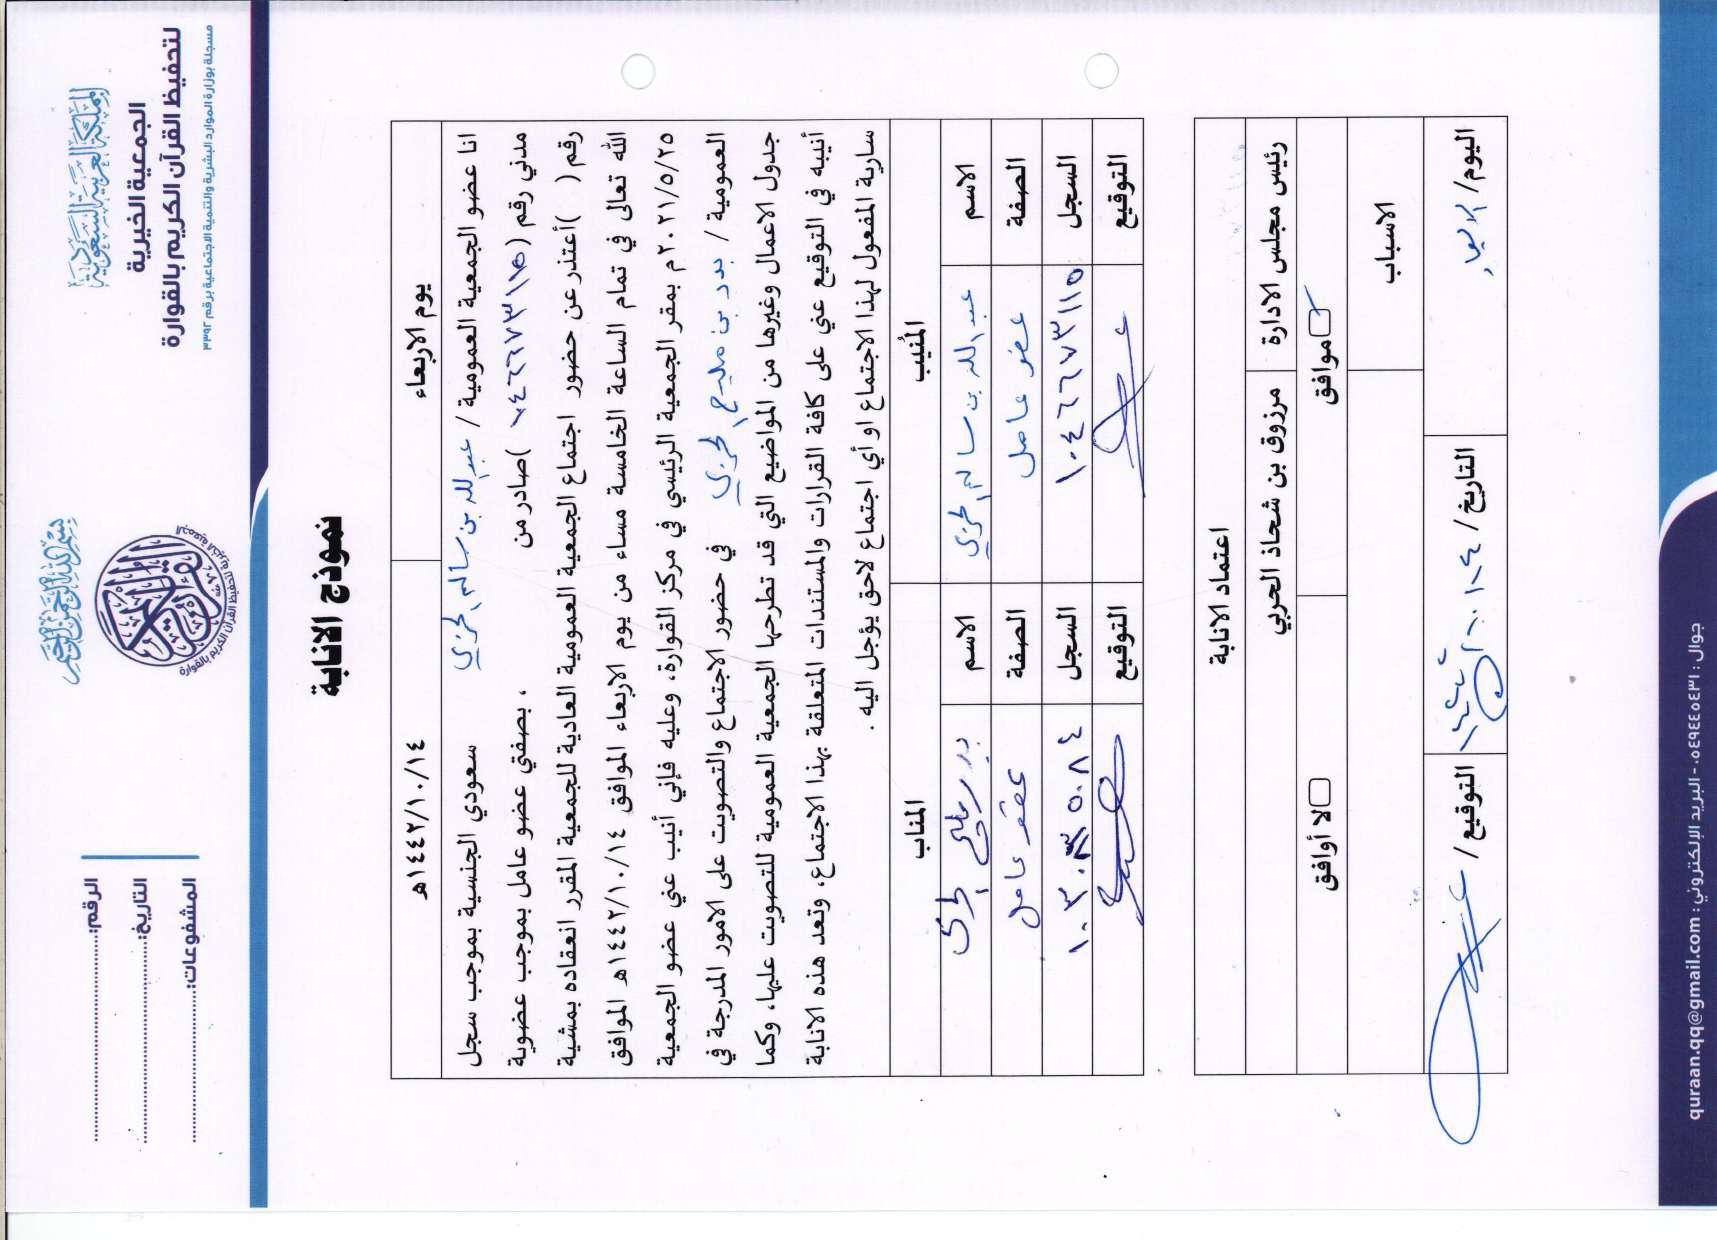 المملكة العربية السعودية
الجمعية الخيرية
لتحفيظ القرآن الكريم بالقوارة
مسجلة بوزارة الموارد البشرية والتنمية الاجتماعية برقم ٣٣٩٢
بسم الله الرحمن الرحيم
القرآن الكريم
الجمعية الخيرية لتحفيظ القرآن الكريم بالقوارة
الرقم:
التاريخ:
المشفوعات:
نموذج الانابة
يوم الاربعاء ١٤٤٢/١٠/١٤هـ
انا عضو الجمعية العمومية / عبدالله بن سالم الحربي سعودي الجنسية بموجب سجل
مدني رقم ( ١٠٤٦٦٧٣١١٥ )صادر من ، بصفتي عضو عامل بموجب عضوية
رقم ( )أعتذر عن حضور اجتماع الجمعية العمومية العادية للجمعية المقرر انعقاده بمشية
الله تعالى في تمام الساعة الخامسة مساء من يوم الاربعاء الموافق ١٤٤٢/١٠/١٤هـ الموافق
٢٠٢١/٥/٢٥م بمقر الجمعية الرئيسي في مركز القوارة، وعليه فإني أنيب عني عضو الجمعية
العمومية / بدر بن مليح الحربي في حضور الاجتماع والتصويت على الامور المدرجة في
جدول الاعمال وغيرها من المواضيع التي قد تطرحها الجمعية العمومية للتصويت عليها، وكما
أنيبه في التوقيع عني على كافة القرارات والمستندات المتعلقة بهذا الاجتماع، وتعد هذه الانابة
سارية المفعول لهذا الاجتماع او أي اجتماع لاحق يؤجل اليه .
المُنيب المناب
الاسم عبدالله بن سالم الحربي الاسم بدر مليح الحربي
الصفة عضو عامل الصفة عضو عامل
السجل ١٠٤٦٦٧٣١١٥ السجل
التوقيع التوقيع
اعتماد الانابة
رئيس مجلس الادارة مرزوق بن شحاذ الحربي
موافق لا أوافق
الاسباب
اليوم/ الاربعاء التاريخ / التوقيع /
جوال : ٠٥٤٩٤٤٥٤٣١ - البريد الإلكتروني : quraan.qq@gmail.com